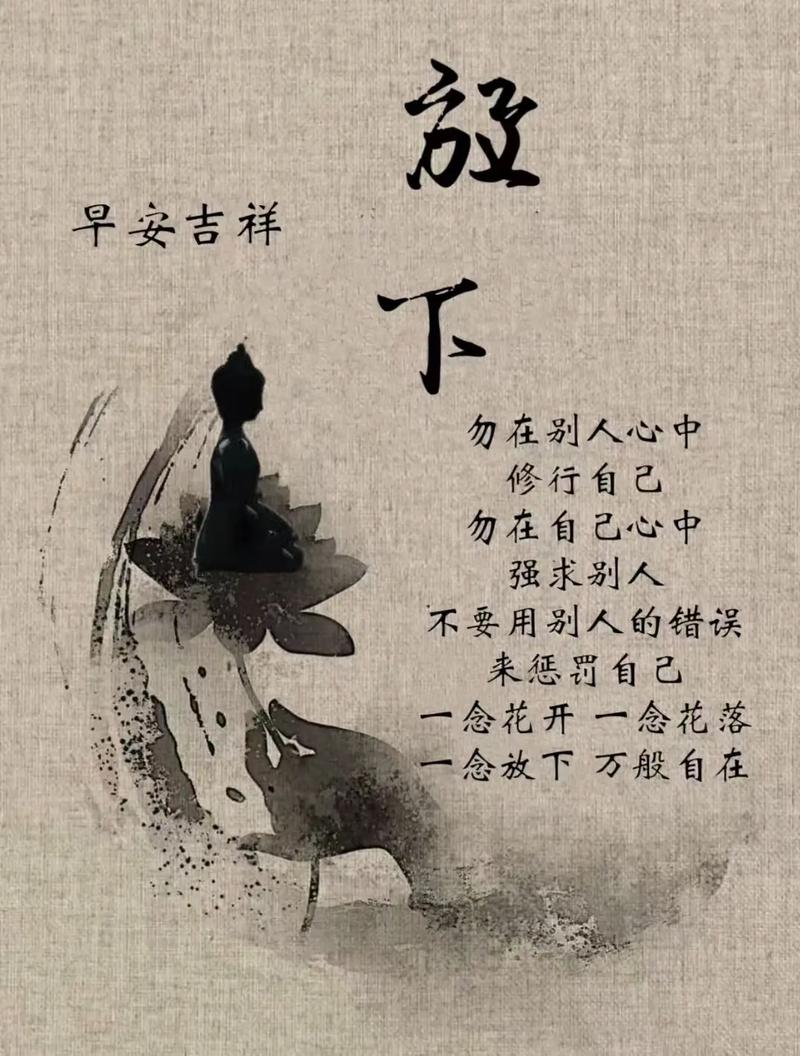 放
下
早安吉祥
勿在别人心中
修行自己
勿在自己心中
强求别人
不要用别人的错误
来惩罚自己
一念花开 一念花落
一念放下 万般自在